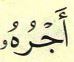 أَجْرُهُۥ